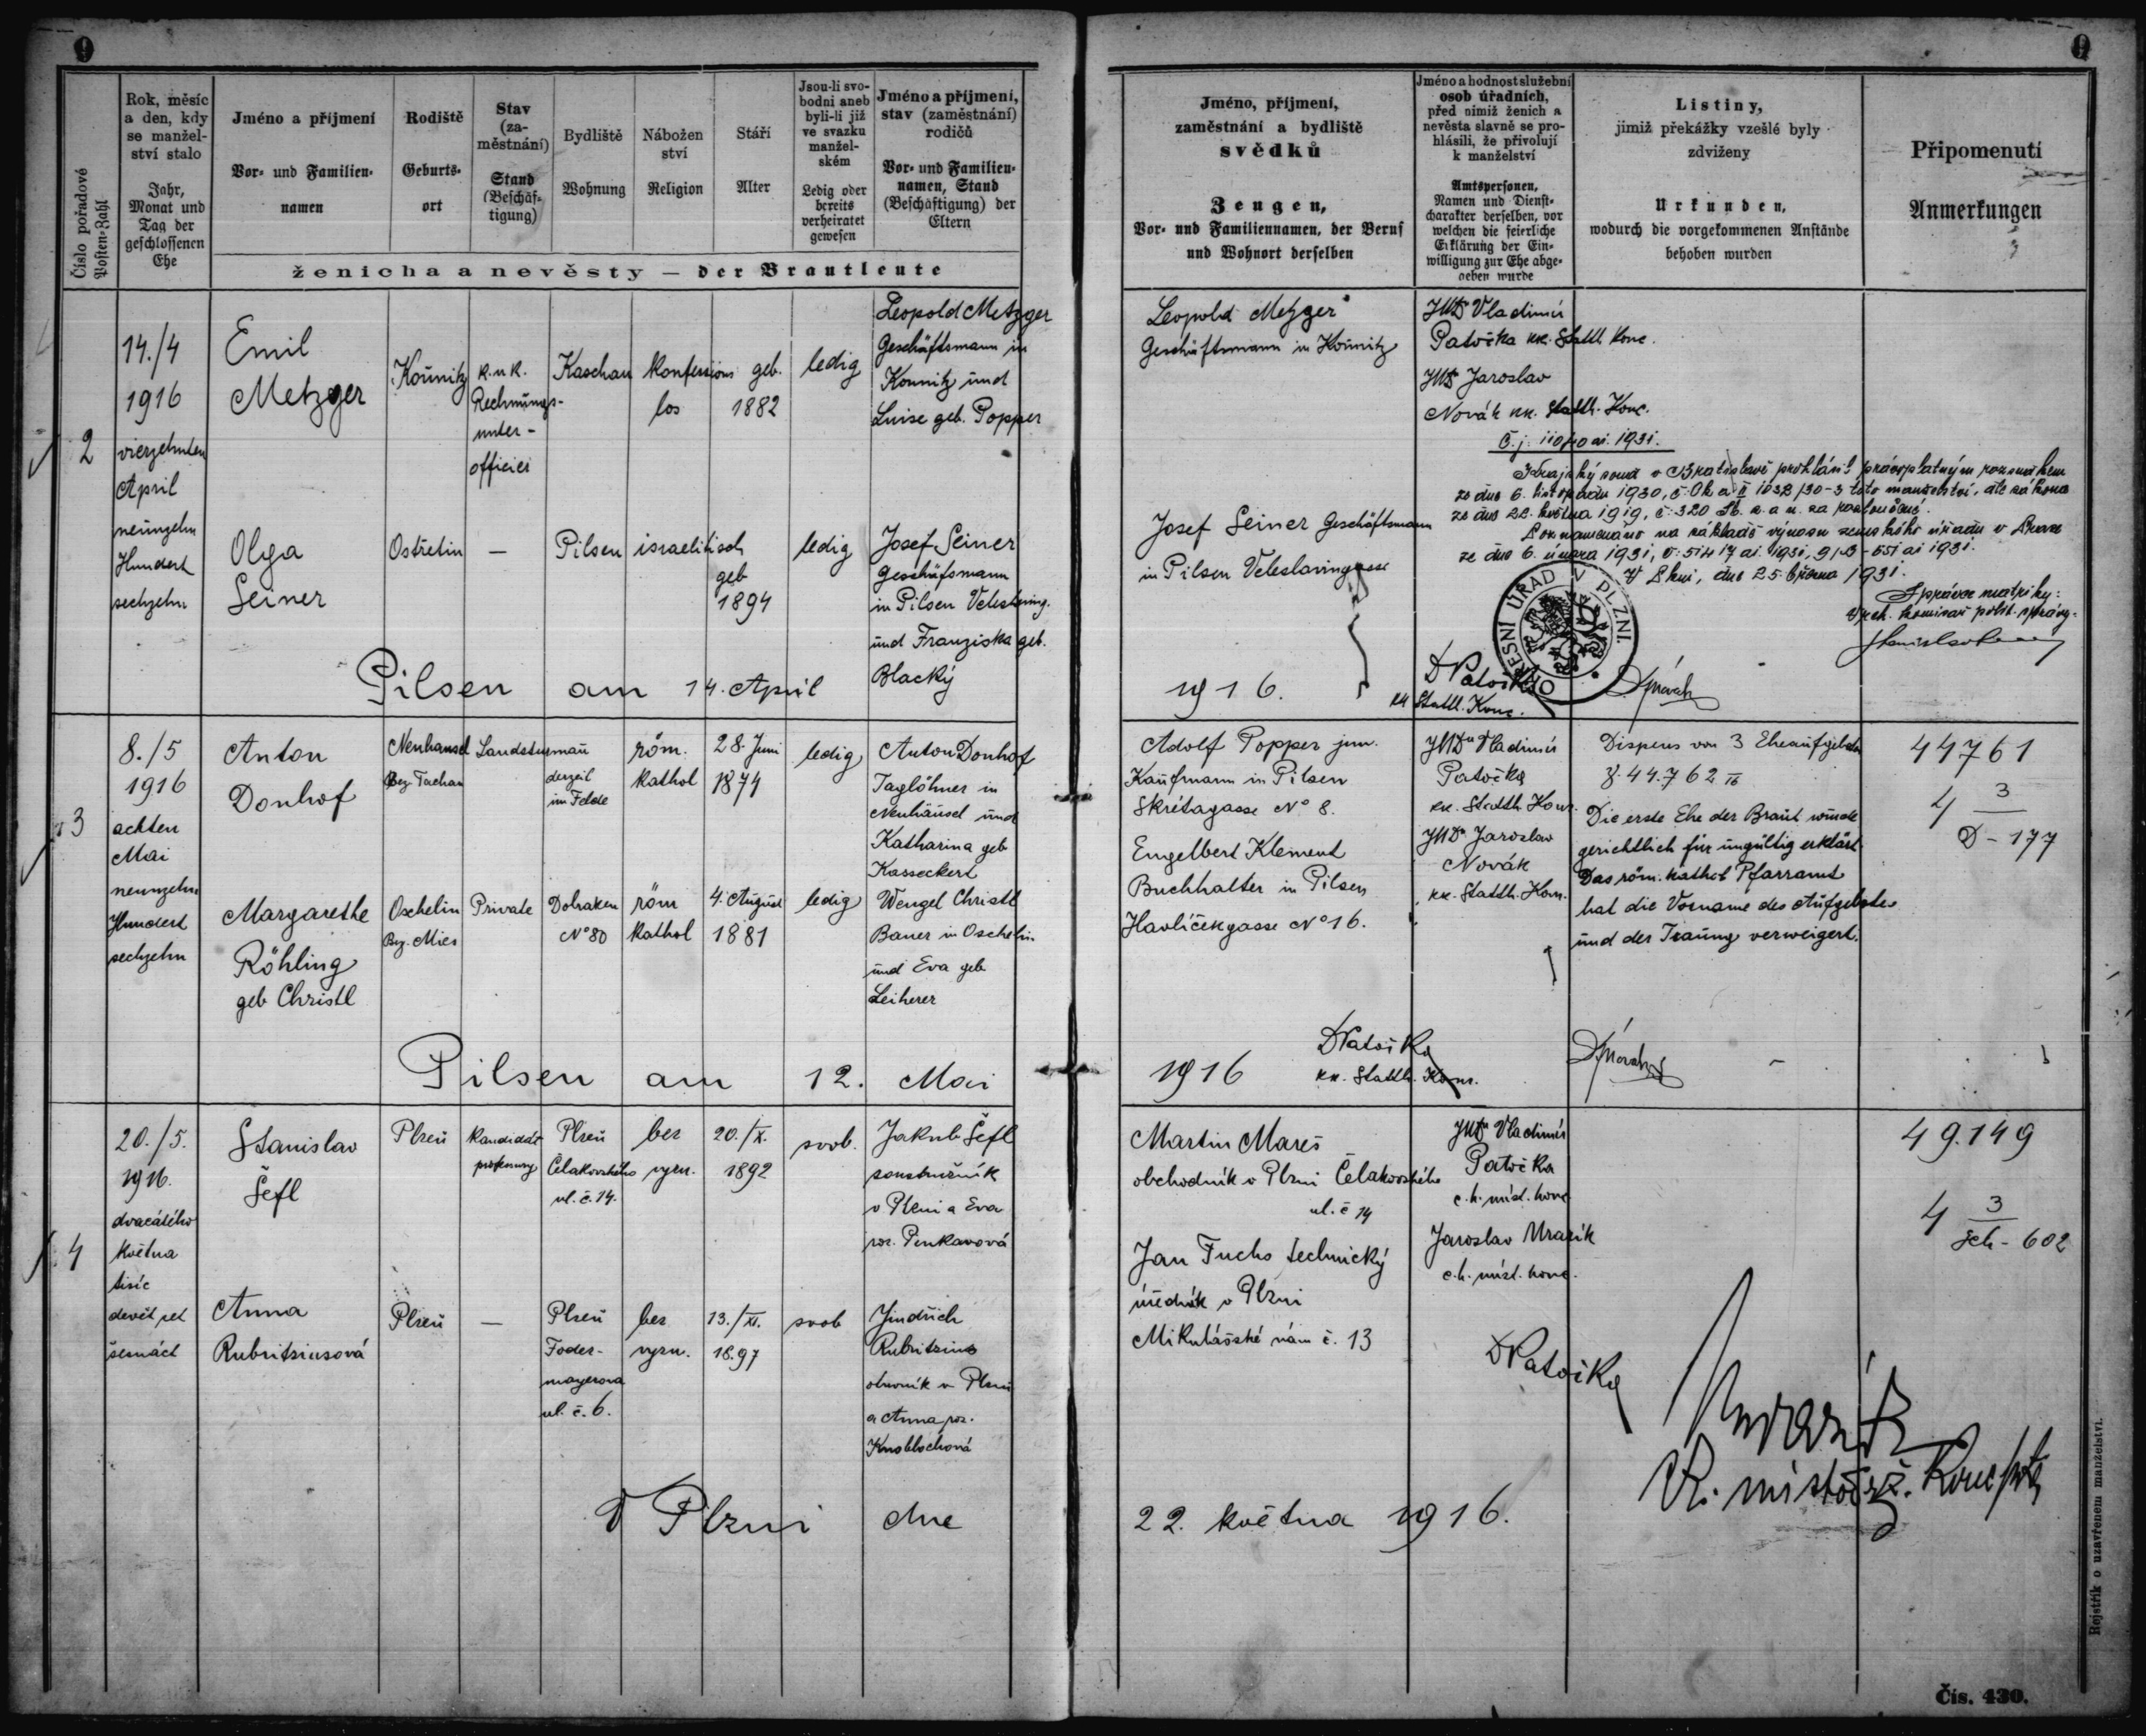 9
9
Číslo pořadové
Posten-Zahl
Rok, měsíc
a den, kdy
se manžel-
ství stalo
Jahr,
Monat und
Tag der
geschlossenen
Ehe
Jméno a příjmení
Vor- und Familien-
namen
Rodiště
Geburts-
ort
Stav
(za-
městnání)
Stand
(Beschäf-
tigung)
Bydliště
Wohnung
Nábožen
ství
Religion
Stáří
Alter
Jsou-li svo-
bodni aneb
byli-li již
ve svazku
manžel-
ském
Ledig oder
bereits
verheiratet
gewesen
Jméno a příjmení,
stav (zaměstnání)
rodičů
Vor- und Familien-
namen, Stand
(Beschäftigung) der
Eltern
ženicha a nevěsty — der Brautleute
Jméno, příjmení,
zaměstnání a bydliště
svědků
Zeugen,
Vor- und Familiennamen, der Beruf
und Wohnort derselben
Jméno a hodnost služební
osob úřadních,
před nimiž ženich a
nevěsta slavně se pro-
hlásili, že přivolují
k manželství
Amtspersonen,
Namen und Dienst-
charakter derselben, vor
welchen die feierliche
Erklärung der Ein-
willigung zur Ehe abge-
geben wurde
Listiny,
jimiž překážky vzešlé byly
zdviženy
Urkunden,
wodurch die vorgekommenen Anstände
behoben wurden
Připomenutí
Anmerkungen
2
14./4
1916
vierzehnten
April
neunzehn
Hundert
sechzehn
Emil
Metzger
Kounitz
k.u.k.
Rechnungs-
unter-
officier
Kaschau
konfessions
los
geb.
1882
ledig
Leopold Metzger
Geschäftsmann in
Kounitz und
Luise geb. Popper
Olga
Seiner
Ostřetin
—
Pilsen
israelitisch
geb
1894
ledig
Josef Seiner
Geschäfsmann
in Pilsen Veleslaving.
und Franziska geb.
Blacký
Leopold Metzger
Geschäftsmann in Kounitz
Josef Seiner Geschäftsmann
in Pilsen Veleslavingasse
JUDr Vladimír
Patočka kk. Statth. Konc.
JUDr Jaroslav
Novák kk. Statth. Konc.
Č.j. 110/40 ai. 1931.
Krajský soud v Bratislavě prohlásil právoplatným rozsudkem
ze dne 6. listopadu 1930, č. Ok a II 1032/30-3 toto manželství, dle zákona
ze dne 22. května 1919, č. 320 Sb. z. a n. za rozloučené.
Poznamenáno na základě výnosu zemského úřadu v Praze
ze dne 6. února 1931,
V Plzni, dne 25. března 1931.
Správce matriky:
Vrch. komisař polit. správy:
OKRESNÍ ÚŘAD V PLZNI.
Pilsen am 14. April 1916.
Dr Patočka
kk Statth. Konc.
Dr Novák
3
8./5
1916
achten
Mai
neunzehn
Hundert
sechzehn
Anton
Donhof
Neuhäusel
Bez. Tachau
Landsturmann
derzeit
im Felde
röm.
kathol
28. Juni
1874
ledig
Anton Donhof
Taglöhner in
Neuhäusel und
Katharina geb
Kasseckert
Margarethe
Röhling
geb Christl
Oschelin
Bez. Mies
Private
Dobraken
No 80
röm
kathol
4. August
1881
ledig
Wenzel Christl
Bauer in Oschelin
und Eva geb
Leiherer
Adolf Popper jun.
Kaufmann in Pilsen
Skrétagasse No 8.
Engelbert Klement
Buchhalter in Pilsen
Havlíčekgasse No 16.
JUDr Vladimír
Patočka
kk. Statth. Konc.
JUDr Jaroslav
Novák
kk. Statth. Konc.
Dispens von 3 Eheaufgeboten
Z. 44.762 IV
Die erste Ehe der Braut wurde
gerichtlich für ungültig erklärt.
Das röm. kathol Pfarramt
hat die Vorname des Aufgebotes
und der Trauung verweigert.
44761
4 3
D - 177
Pilsen am 12. Mai 1916
Dr Patočka
kk. Statth. Konc.
Dr Novák
4
20./5.
1916.
dvacátého
května
tisíc
devět set
šesnáct
Stanislav
Šefl
Plzeň
kandidát
profesury
Plzeň
Čelakovského
ul. č. 14.
bez
vyzn.
20./X.
1892
svob.
Jakub Šefl
soustružník
v Plzni a Eva
roz. Pinkavová
Anna
Rubritziusová
Plzeň
—
Plzeň
Foder-
mayerova
ul. č. 6.
bez
vyzn.
13./XI.
1897
svob
Jindřich
Rubritzius
obuvník v Plzni
a Anna roz.
Knoblochová
Martin Mareš
obchodník v Plzni Čelakovského
ul. č 14
Jan Fuchs technický
úředník v Plzni
Mikulášské nám č. 13
JUDr Vladimír
Patočka
c.k. míst. konc
Jaroslav Mrazík
c.k. míst. konc.
49.149
4 3
Sch - 602
Dr Patočka
Mrazík
V Plzni dne 22. května 1916.
Rejstřík o uzavřeném manželství.
Čís. 430.